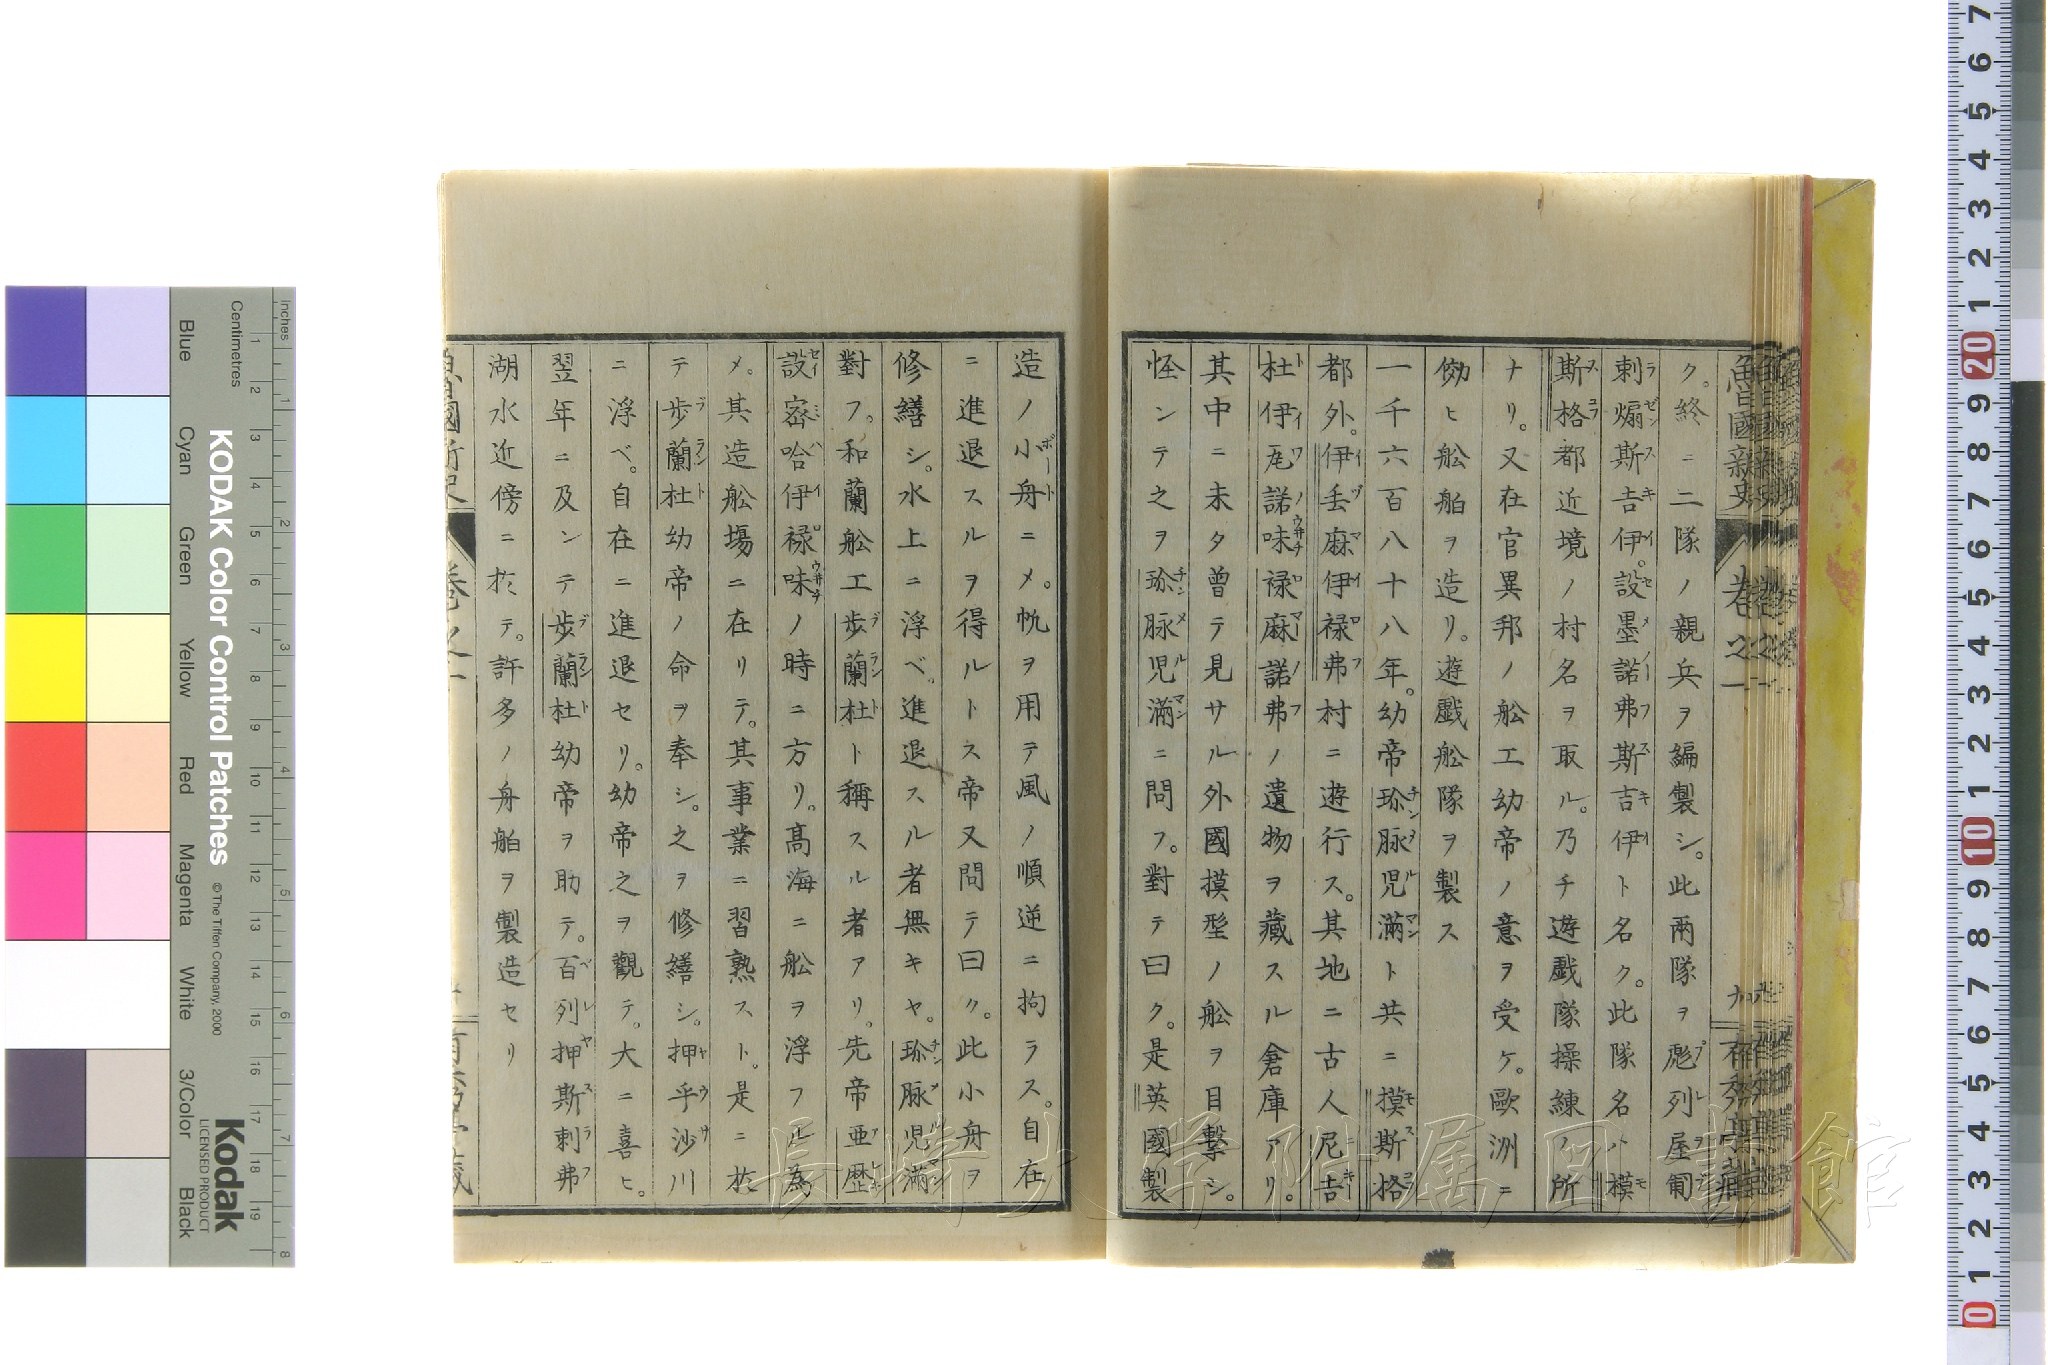 魯國新史 卷之一
ク。終ニ二隊ノ親兵ヲ編製シ。此兩隊ヲ彪列屋蔔
剌煽斯吉伊。設墨諾弗斯吉伊ト名ク。此隊名ハ模
斯格都近境ノ村名ヲ取ル。乃チ遊戲隊操練ノ所
ナリ。又在官異邦ノ舩工幼帝ノ意ヲ受ケ。歐洲ニ
傚ヒ舩舶ヲ造リ。遊戲舩隊ヲ製ス
一千六百八十八年。幼帝珎脉児滿ト共ニ摸斯格
都外。伊壬麻伊禄弗村ニ遊行ス。其地ニ古人尼吉
杜伊瓦諾味禄麻諾弗ノ遺物ヲ藏スル倉庫アリ。
其中ニ未タ曾テ見サル外國摸型ノ舩ヲ目撃シ。
怪ンテ之ヲ珎脉児滿ニ問フ。對テ曰ク。是英國製
造ノ小舟ニメ。帆ヲ用テ風ノ順逆ニ拘ラス。自在
ニ進退スルヲ得ルトス帝又問テ曰ク。此小舟ヲ
修繕シ。水上ニ浮ベ。進退スル者無キヤ。珎脉児滿
對フ。和蘭舩工歩蘭杜ト稱スル者アリ。先帝亜歴
設密哈伊禄味ノ時ニ方リ。髙海ニ舩ヲ浮フル為
メ。其造舩場ニ在リテ。其事業ニ習熟スト。是ニ於
テ歩蘭杜幼帝ノ命ヲ奉シ。之ヲ修繕シ。押乎沙川
ニ浮ベ。自在ニ進退セリ。幼帝之ヲ觀テ。大ニ喜ヒ。
翌年ニ及ンテ歩蘭杜幼帝ヲ助テ。百列押斯剌弗
湖水近傍ニ於テ。許多ノ舟舶ヲ製造セリ
KODAK Color Control Patches
© The Tiffen Company, 2000
Kodak
LICENSED PRODUCT
Blue Cyan Green Yellow Red Magenta White 3/Color Black
Centimetres
Inches
長崎大学附属図書館